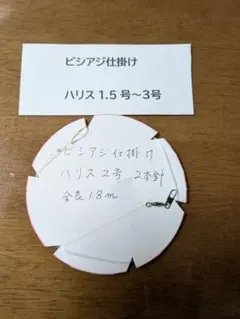 ビシアジ仕掛け
ハリス 1.5 号～3号
ビシアジ仕掛け
ハリス2号 2本針
全長1.8m